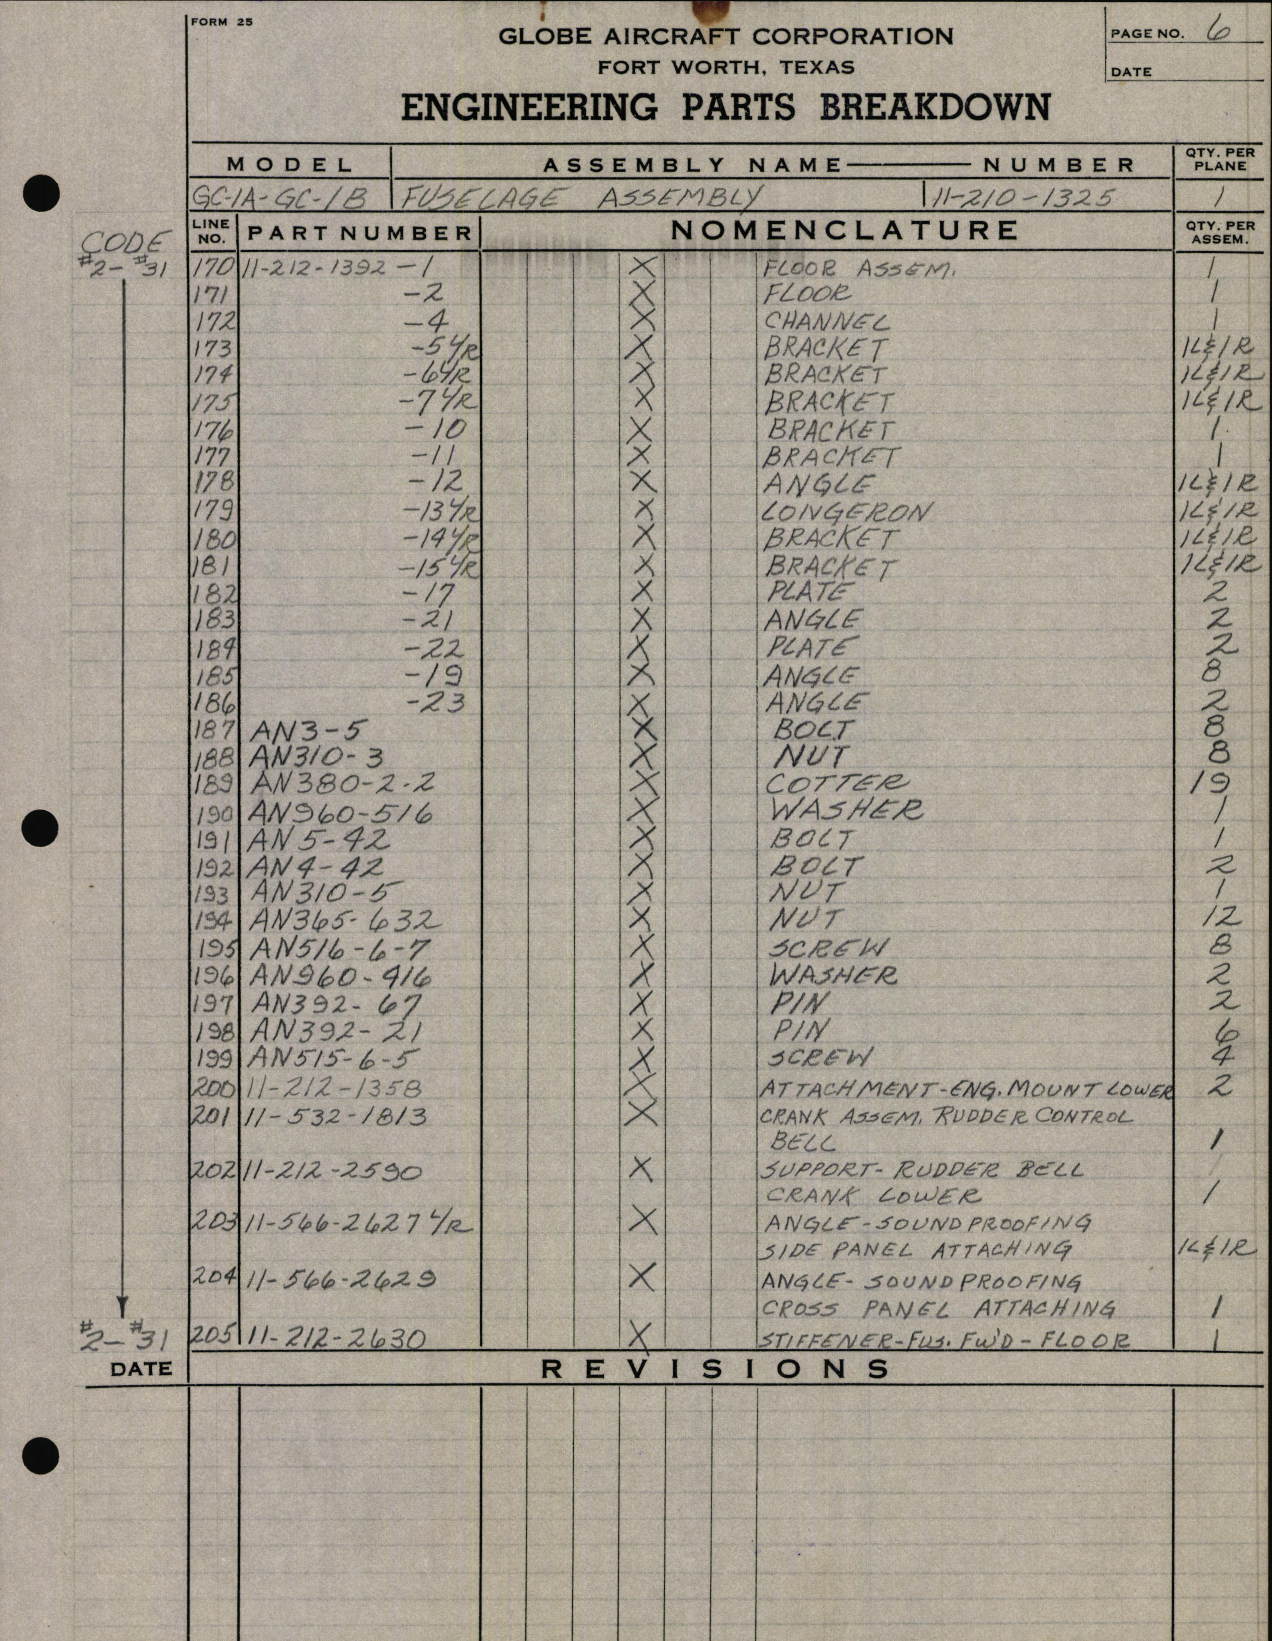 FORM 25
GLOBE AIRCRAFT CORPORATION
FORT WORTH, TEXAS
ENGINEERING PARTS BREAKDOWN
PAGE NO. 6
DATE
MODEL ASSEMBLY NAME — NUMBER QTY. PER PLANE
GC-1A-GC-1B FUSELAGE ASSEMBLY 11-210-1325 1
CODE LINE NO. PART NUMBER NOMENCLATURE QTY. PER ASSEM.
#2-#31 170 11-212-1392-1 X FLOOR ASSEM. 1
171 -2 X FLOOR 1
172 -4 X CHANNEL 1
173 -5 L/R X BRACKET 1L&1R
174 -6 L/R X BRACKET 1L&1R
175 -7 L/R X BRACKET 1L&1R
176 -10 X BRACKET 1
177 -11 X BRACKET 1
178 -12 X ANGLE 1L&1R
179 -13 L/R X LONGERON 1L&1R
180 -14 L/R X BRACKET 1L&1R
181 -15 L/R X BRACKET 1L&1R
182 -17 X PLATE 2
183 -21 X ANGLE 2
184 -22 X PLATE 2
185 -19 X ANGLE 8
186 -23 X ANGLE 2
187 AN3-5 X BOLT 8
188 AN310-3 X NUT 8
189 AN380-2-2 X COTTER 19
190 AN960-516 X WASHER 1
191 AN5-42 X BOLT 1
192 AN4-42 X BOLT 2
193 AN310-5 X NUT 1
194 AN365-632 X NUT 12
195 AN516-6-7 X SCREW 8
196 AN960-416 X WASHER 2
197 AN392-67 X PIN 2
198 AN392-21 X PIN 6
199 AN515-6-5 X SCREW 4
200 11-212-1358 X ATTACHMENT-ENG. MOUNT LOWER 2
201 11-532-1813 X CRANK ASSEM. RUDDER CONTROL
BELL 1
202 11-212-2590 X SUPPORT-RUDDER BELL
CRANK LOWER 1
203 11-566-2627 L/R X ANGLE-SOUNDPROOFING
SIDE PANEL ATTACHING 1L&1R
204 11-566-2629 X ANGLE-SOUNDPROOFING
CROSS PANEL ATTACHING 1
#2-#31 205 11-212-2630 X STIFFENER-FUS. FW'D-FLOOR 1
DATE REVISIONS